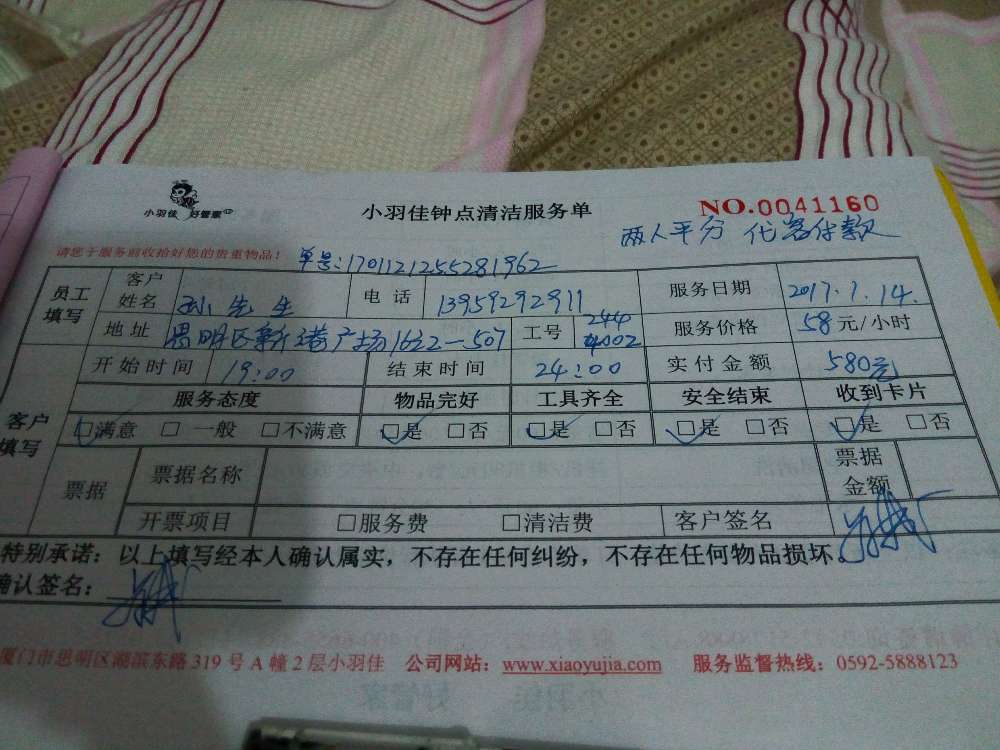 小羽佳 好管家
小羽佳钟点清洁服务单
NO.0041160
两人平分 代客付款
请您于服务前收拾好您的贵重物品！
单号:1701121255281962
员工填写
客户姓名 孙先生 电话 13959292911 服务日期 2017.1.14.
地址 思明区新港广场1622—507 工号 244 4002 服务价格 58元/小时
客户填写
开始时间 19:00 结束时间 24:00 实付金额 580元
服务态度 物品完好 工具齐全 安全结束 收到卡片
☑满意 □一般 □不满意 ☑是 □否 ☑是 □否 ☑是 □否 ☑是 □否
票据 票据名称 票据金额
开票项目 □服务费 □清洁费 客户签名
特别承诺：以上填写经本人确认属实，不存在任何纠纷，不存在任何物品损坏。
确认签名：
厦门市思明区湖滨东路319号A幢2层小羽佳 公司网站：www.xiaoyujia.com 服务监督热线：0592-5888123